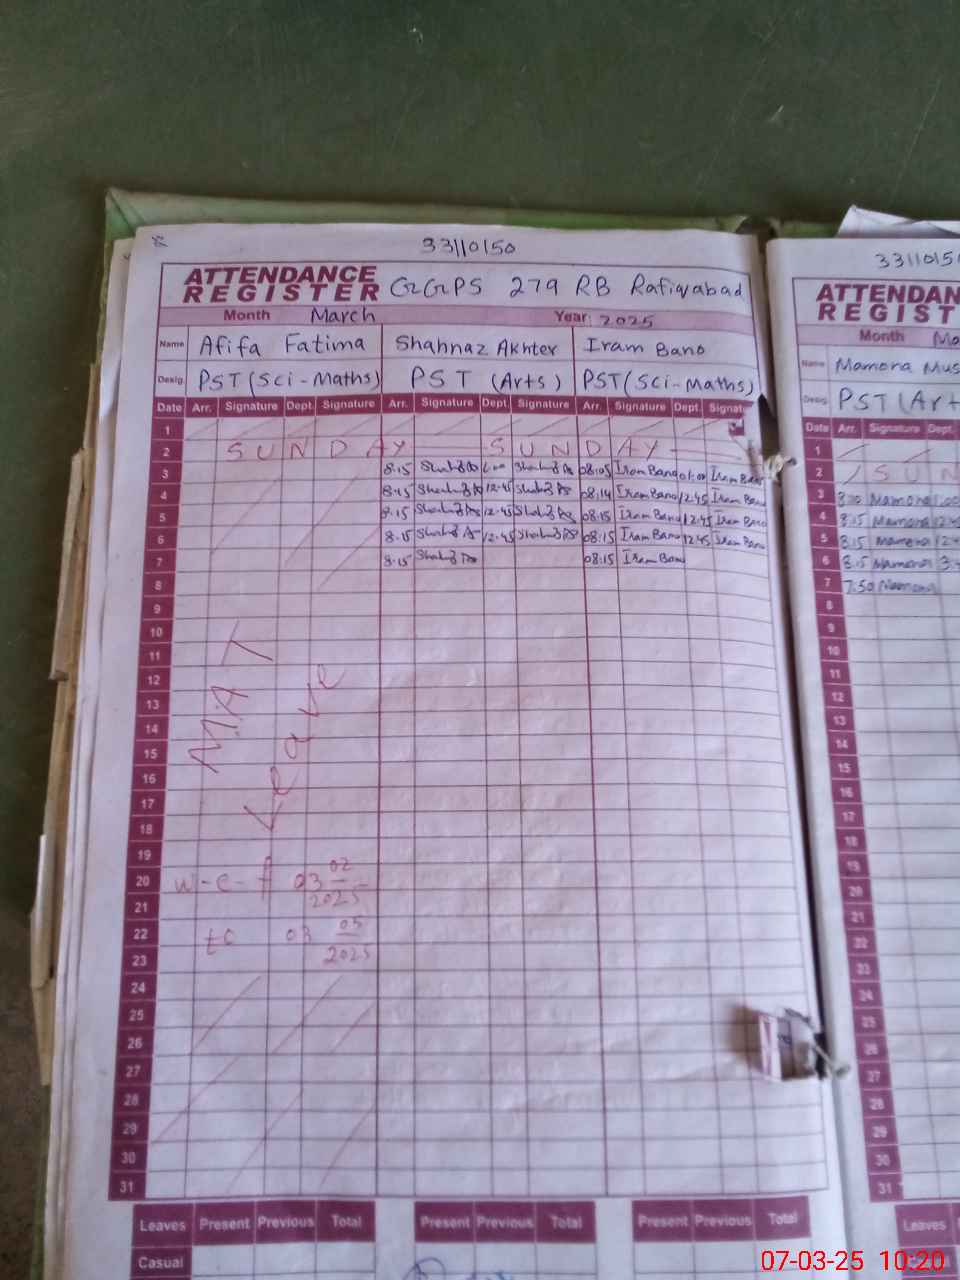 33110150
ATTENDANCE REGISTER GGPS 279 RB Rafiqabad
Month March Year: 2025
Name Afifa Fatima Shahnaz Akhter Iram Bano
Desig. PST (Sci-Maths) PST (Arts) PST (Sci-Maths)
Date Arr. Signature Dept. Signature Arr. Signature Dept. Signature Arr. Signature Dept. Signature
1
2 SUNDAY SUNDAY
3 8.15 08:05 Iram Bano 01:00 Iram Bano
4 8.15 12.45 08:14 Iram Bano 12.45 Iram Bano
5 8.15 12.45 08:15 Iram Bano 12.45 Iram Bano
6 8.15 12.45 08:15 Iram Bano 12.45 Iram Bano
7 8.15 08:15 Iram Bano
8
9
10
11
12
13
14
15
16
17
18
M.A T
Leave
19
20 w-e-f 03 02 2025
21
22 to 03 05 2025
23
24
25
26
27
28
29
30
31
Leaves Present Previous Total Present Previous Total Present Previous Total
Casual
3311015
ATTENDAN
REGIST
Month Ma
Name Mamona Mus
Desig. PST (Art
Date Arr. Signature Dept.
1
2 SUN
3 Mamona 1.00
4 8.15 Mamona 12.4
5 8.15 Mamona 12.4
6 8.15 Mamona 3.
7 7.50 Mamona
8
9
10
11
12
13
14
15
16
17
18
19
20
21
22
23
24
25
26
27
28
29
30
31
Leaves Present
Casual
07-03-25 10:20